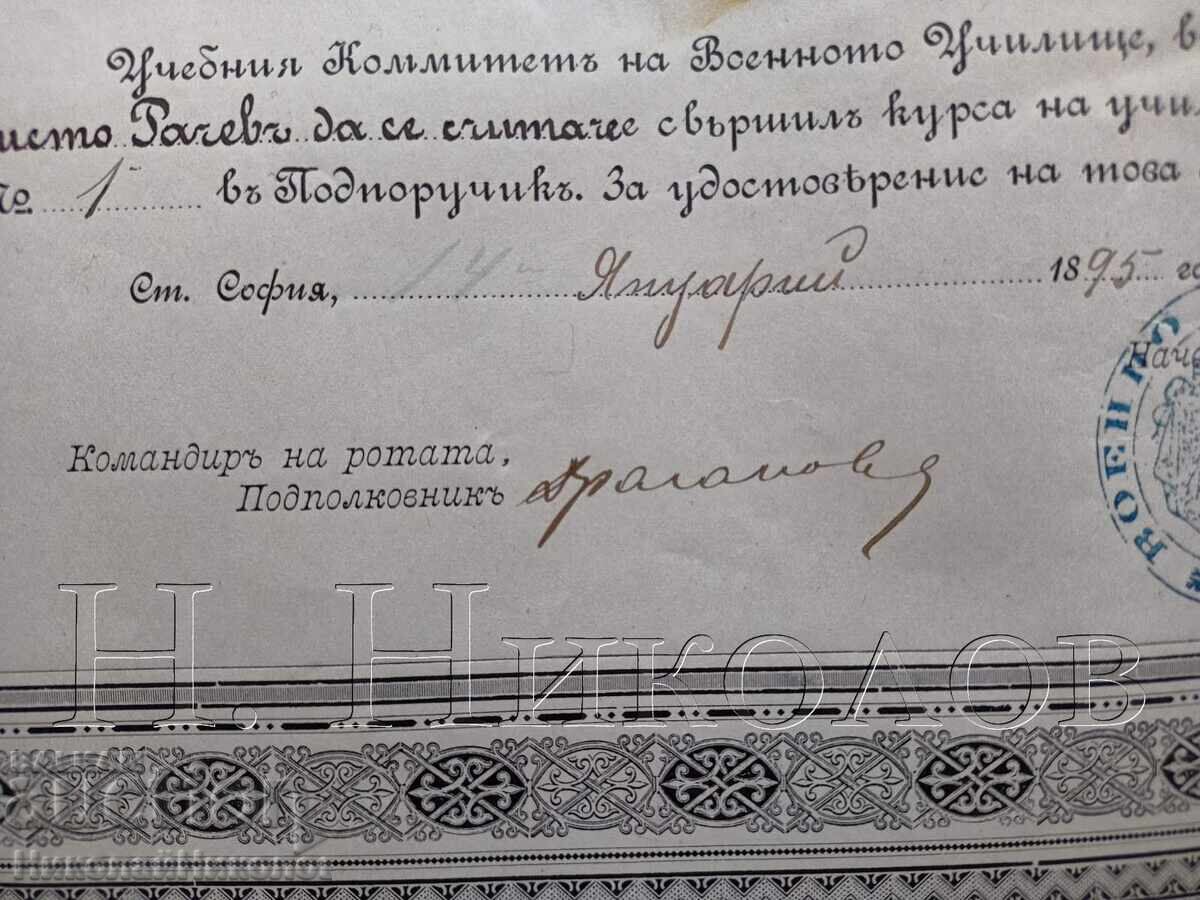 Учебния Коммитетъ на Военното Училище, в
исто Рачевъ да се считаче свършилъ курса на учи
№ 1 въ Подпоручикъ. За удостовѣрение на това
Ст. София, 14 Януарий 1895 го
Наче
Командиръ на ротата,
Подполковникъ Драгановъ
ВОЕННО
Н. Николов